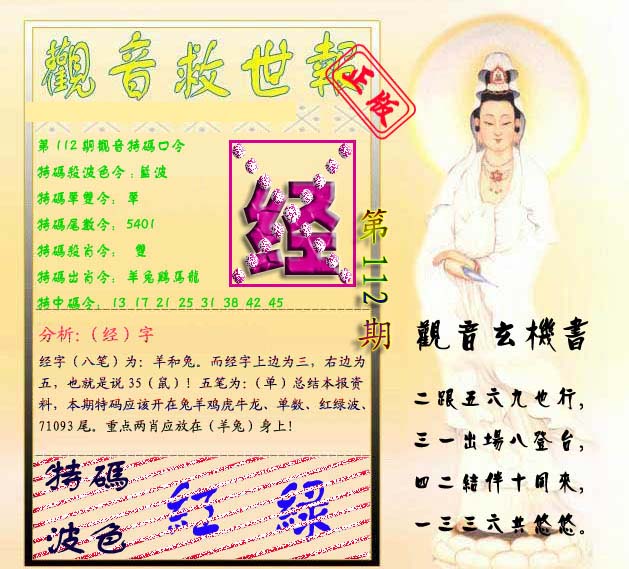 觀音救世報
正版
第112期觀音特碼口令
特碼殺波色令:藍波
特碼單雙令: 單
特碼尾數令: 5401
特碼殺肖令: 雙
特碼出肖令: 羊兔鷄馬龍
特中碼令: 13 17 21 25 31 38 42 45
经
第112期
分析:（经）字
经字（八笔）为：羊和兔。而经字上边为三，右边为
五，也就是说 35（鼠）！五笔为：（单）总结本报资
料，本期特码应该开在兔羊鸡虎牛龙、单数、红绿波、
71093 尾。重点两肖应放在（羊兔）身上！
特碼
波色
紅 綠
觀音玄機書
二跟五六九也行，
三一出場八登台，
四二結伴十同來，
一三三六共悠悠。